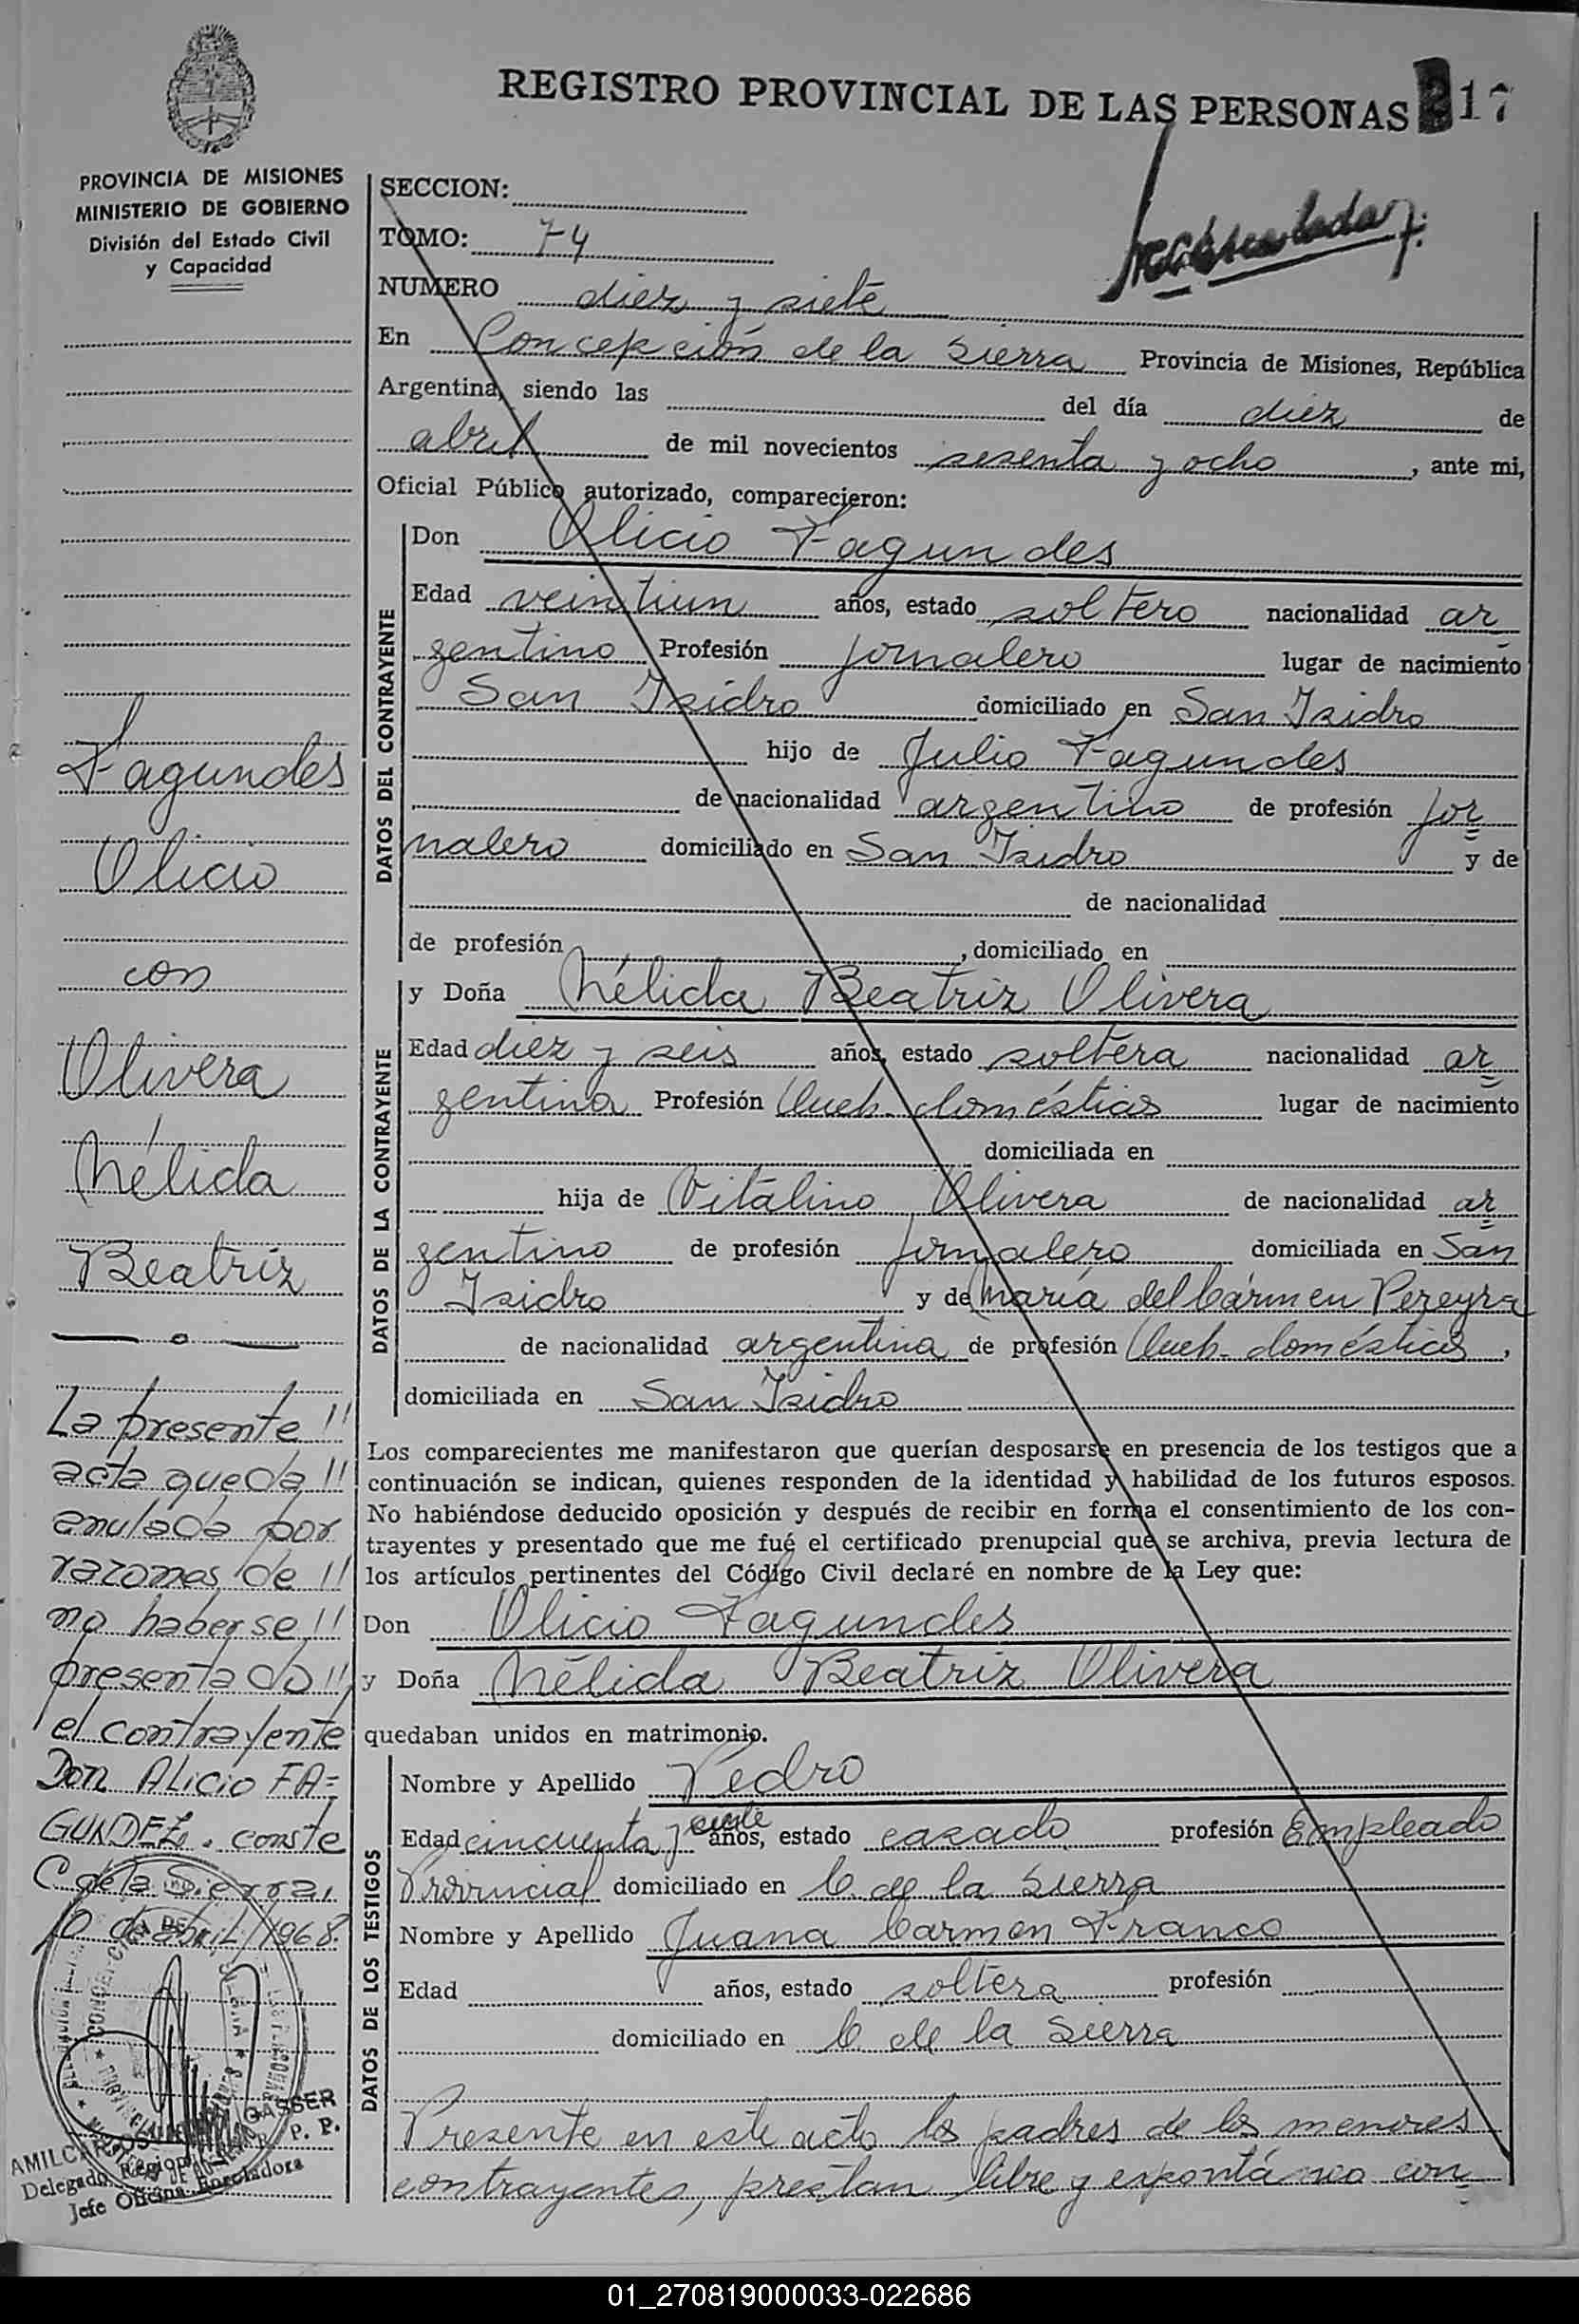 REGISTRO PROVINCIAL DE LAS PERSONAS 217
PROVINCIA DE MISIONES
MINISTERIO DE GOBIERNO
División del Estado Civil
y Capacidad
SECCION:
TOMO: 74
NUMERO diez y siete
En Concepción de la Sierra Provincia de Misiones, República
Argentina, siendo las del día diez de
abril de mil novecientos sesenta y ocho, ante mi,
Oficial Público autorizado, comparecieron:
DATOS DEL CONTRAYENTE
Don Olicio Fagundes
Edad veintiun años, estado soltero nacionalidad ar
gentino Profesión jornalero lugar de nacimiento
San Isidro domiciliado en San Isidro
hijo de Julio Fagundes
de nacionalidad argentino de profesión jor
nalero domiciliado en San Isidro y de
de nacionalidad
de profesión , domiciliado en
DATOS DE LA CONTRAYENTE
y Doña Nélida Beatriz Olivera
Edad diez y seis años, estado soltera nacionalidad ar
gentina Profesión Queh. domésticos lugar de nacimiento
domiciliada en
hija de Vitalino Olivera de nacionalidad ar
gentino de profesión jornalero domiciliada en San
Isidro y de María del Cármen Pereyra
de nacionalidad argentina de profesión Queh. domésticos,
domiciliada en San Isidro
Los comparecientes me manifestaron que querían desposarse en presencia de los testigos que a
continuación se indican, quienes responden de la identidad y habilidad de los futuros esposos.
No habiéndose deducido oposición y después de recibir en forma el consentimiento de los con-
trayentes y presentado que me fué el certificado prenupcial que se archiva, previa lectura de
los artículos pertinentes del Código Civil declaré en nombre de la Ley que:
Don Olicio Fagundes
y Doña Nélida Beatriz Olivera
quedaban unidos en matrimonio.
DATOS DE LOS TESTIGOS
Nombre y Apellido Pedro
Edad cincuenta y años, estado casado profesión Empleado
Provincial domiciliado en C. de la Sierra
Nombre y Apellido Juana Carmen Franco
Edad años, estado soltera profesión
domiciliado en C. de la Sierra
Presente en este acto los padres de los menores
contrayentes, prestan libre y expontáneo con
Fagundes
Olicio
con
Olivera
Nélida
Beatriz
La presente !!
acta queda !!
anulada por
razones de !!
no haberse !!
presentado !!
el contrayente
Don ALICIO FA=
GUNDEZ. conste
C. de la Sierra,
10 de abril/1968.
GASSER
Delegado Regional
Jefe Oficina Enroladora
01_270819000033-022686